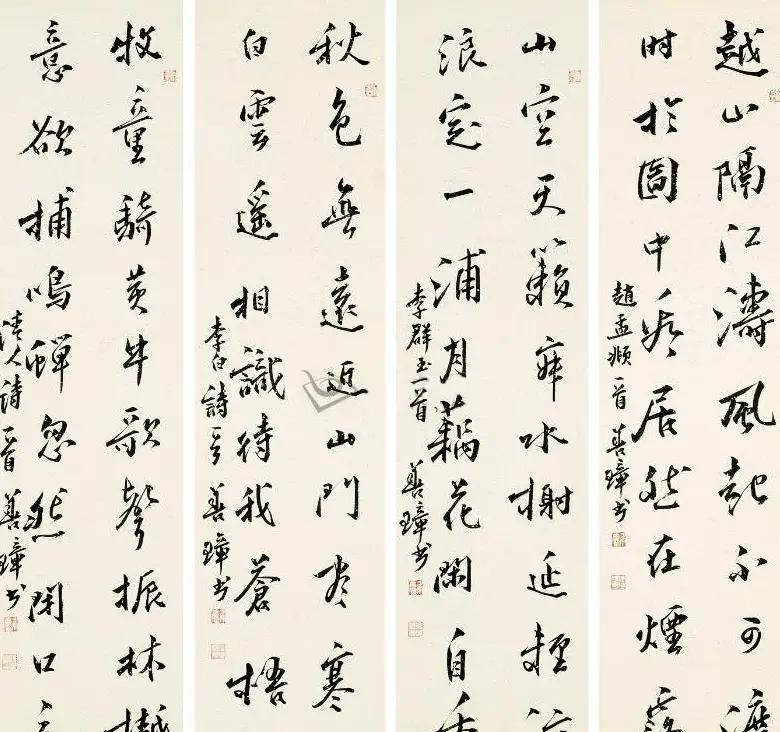 越山隔江濤風起不可渡
時於圖中看居然在煙霧
趙孟頫一首 善璋書
山空天籟寂水榭延輕涼
浪定一浦月藕花閑自香
李群玉一首 善璋書
秋色無遠近出門盡寒
白雲遙相識待我蒼梧
李白詩一首 善璋書
牧童騎黃牛歌聲振林樾
意欲捕鳴蟬忽然閉口立
清人詩一首 善璋書